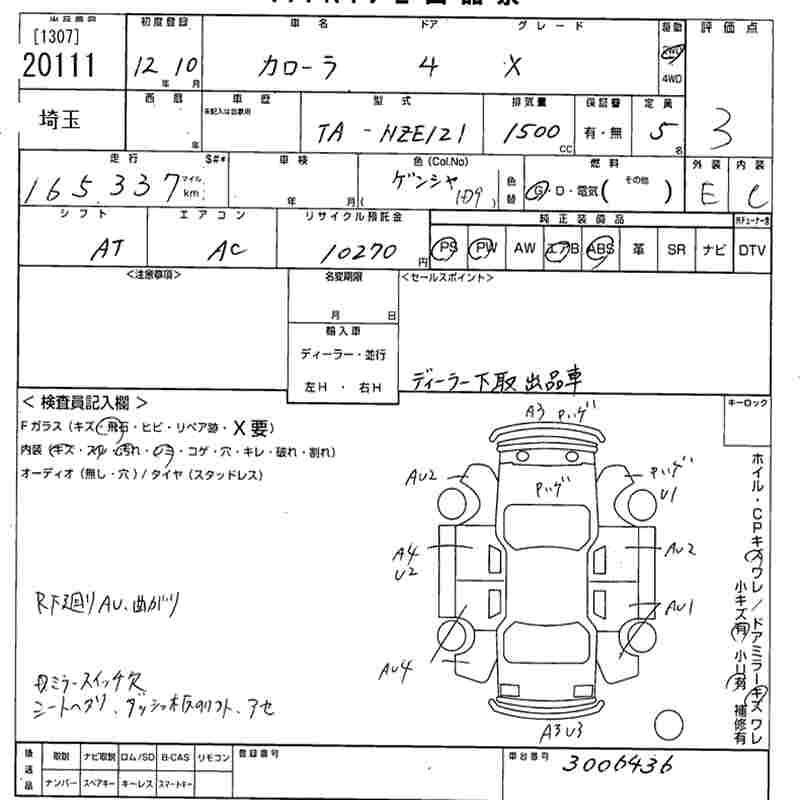 出品番号 初度登録 車名 ドア グレード 駆動 評価点
[1307]
20111 12年 10月 カローラ 4 X 2WD 4WD 3
埼玉 西暦 年 車歴 未記入は自家用 型式 TA-NZE121 排気量 1500 CC 保証書 有・無 定員 5名
走行 S#* 車検 色(Col.No) 燃料 外装 内装
165,337 マイル km 年 月 ゲンシャ 1D9 色替 G・D・電気( その他 ) E C
シフト エアコン リサイクル預託金 純正装備品
AT AC 10270円 PS PW AW エアB ABS 革 SR ナビ DTV
<注意事項> 名変期限 <セールスポイント>
月 日
輸入車
ディーラー・並行
左H ・ 右H ディーラー下取出品車
< 検査員記入欄 > キーロック
Fガラス (キズ・飛石・ヒビ・リペア跡・X要)
内装 (キズ・スレ・汚れ・シミ・コゲ・穴・キレ・破れ・割れ)
オーディオ (無し・穴) / タイヤ (スタッドレス)
A3 ハゲ
AU2 ハゲ ハゲ U1
A4 U2 AU2
AU1
AU4
A3 U3
R下廻りAU、曲がり
ミラースイッチ欠
シートヘタリ、ダッシュ板のリフト、アセ
ホイル・CPキズワレ/ドアミラーキズワレ
小キズ有 小U有 補修有
後送品 取説 ナビ取説 ロム/SD B-CAS リモコン 登録番号 車台番号 3006436
ナンバー スペアキー キーレス スマートキー